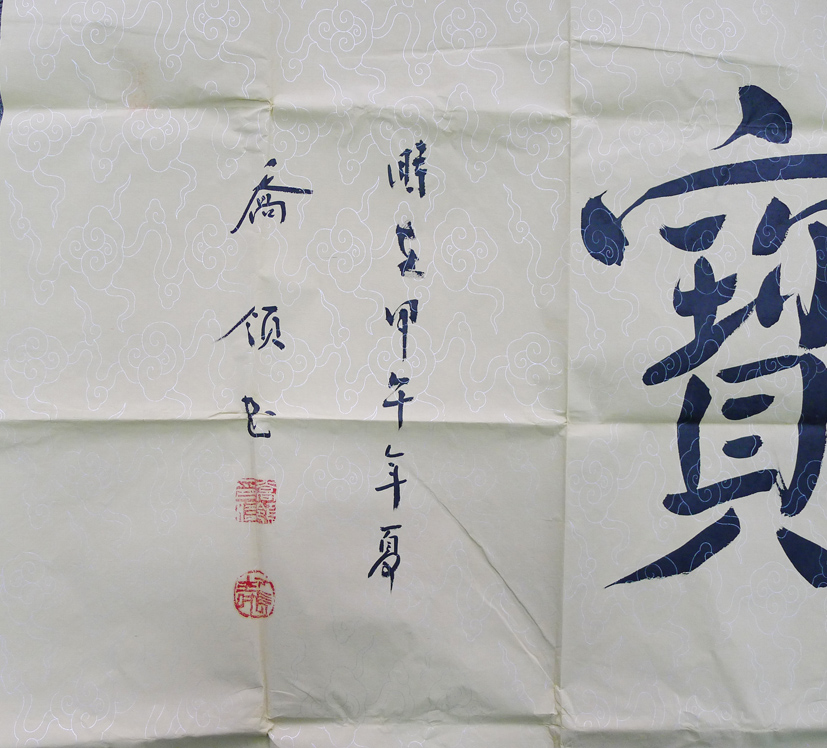 寳
時在甲午年夏
喬領书